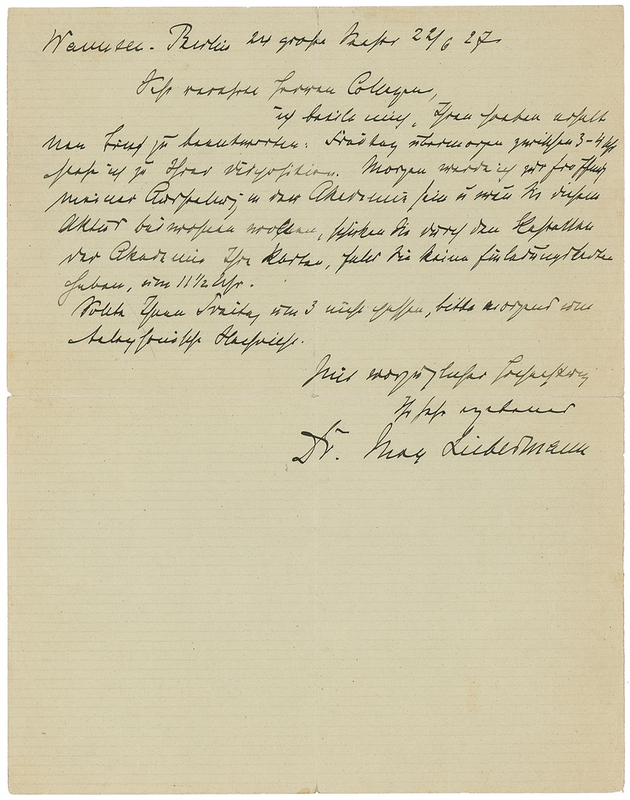 Wannsee-Berlin 24 große Seestr 22/6 27.
Sehr verehrter Herr College,
ich beeile mich, Ihren soeben erhalt
nen Brief zu beantworten: Freitag übermorgen zwischen 3-4 Uhr
stehe ich zu Ihrer Disposition. Morgen werde ich zur Eröffnung
meiner Ausstellung in der Akademie sein u wenn Sie diesem
Aktus beiwohnen wollen, schicken Sie durch den Kastellan
der Akademie Ihre Karten, falls Sie keine Einladungskarten
haben, um 11 1/2 Uhr.
Sollte Ihnen Freitag um 3 nicht passen, bitte morgen um
telephonische Nachricht.
Mit vorzüglicher Hochachtung
Ihr sehr ergebener
Dr. Max Liebermann